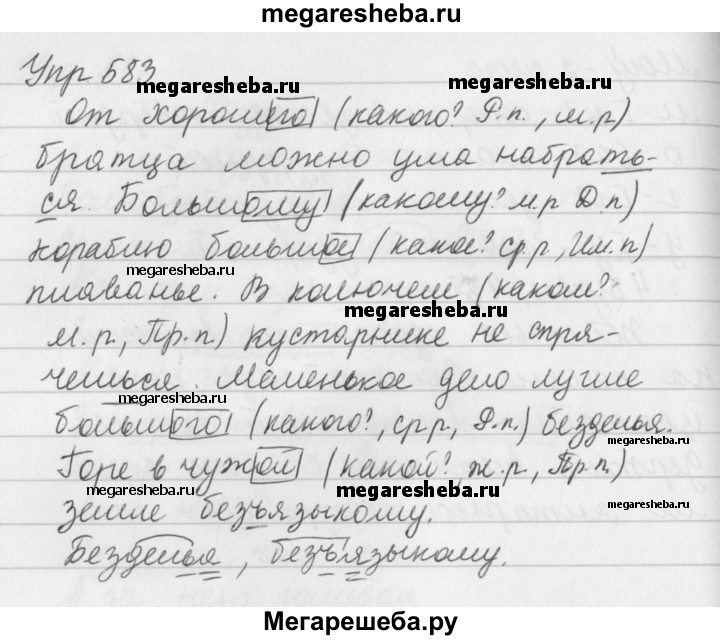 megaresheba.ru
Упр 583
megaresheba.ru
megaresheba.ru
От хорошего (какого? Р.п., м.р)
братца можно ума набрать-
ся. Большому (какому? м.р Д.п)
кораблю большое (какое? ср.р, Им.п)
megaresheba.ru
плаванье. В колючем (каком?
megaresheba.ru
м.р, Пр.п) кустарнике не спря-
чешься. Маленькое дело лучше
megaresheba.ru
большого (какого?, ср.р, Р.п.) безделья.
megaresheba.ru
Горе в чужой (какой? ж.р, Пр.п.)
megaresheba.ru
megaresheba.ru
megaresheba.ru
земле безъязыкому.
Безделья, безъязыкому.
Мегарешеба.ру